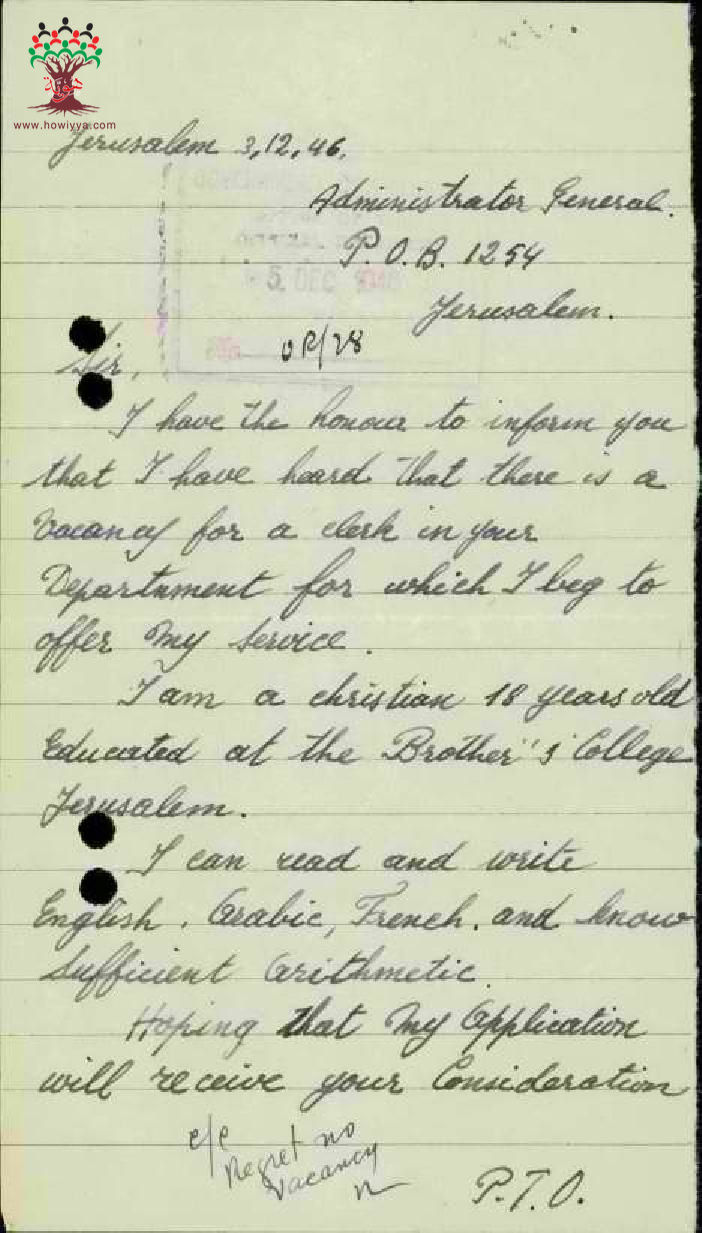 www.howiyya.com
Jerusalem 3,12,46.
Administrator General.
P.O.B. 1254
5 DEC 1946
Jerusalem.
OR/28
Sir,
I have the honour to inform you
that I have heard that there is a
Vacancy for a clerk in your
Departnment for which I beg to
offer My Service.
I am a christian 18 years old
Educated at the Brother's College
Jerusalem.
I can read and write
English, Arabic, French, and know
Sufficient Arithmetic.
Hoping that My Application
will receive your Consideration
c/c
Regret no
Vacancy
P.T.O.